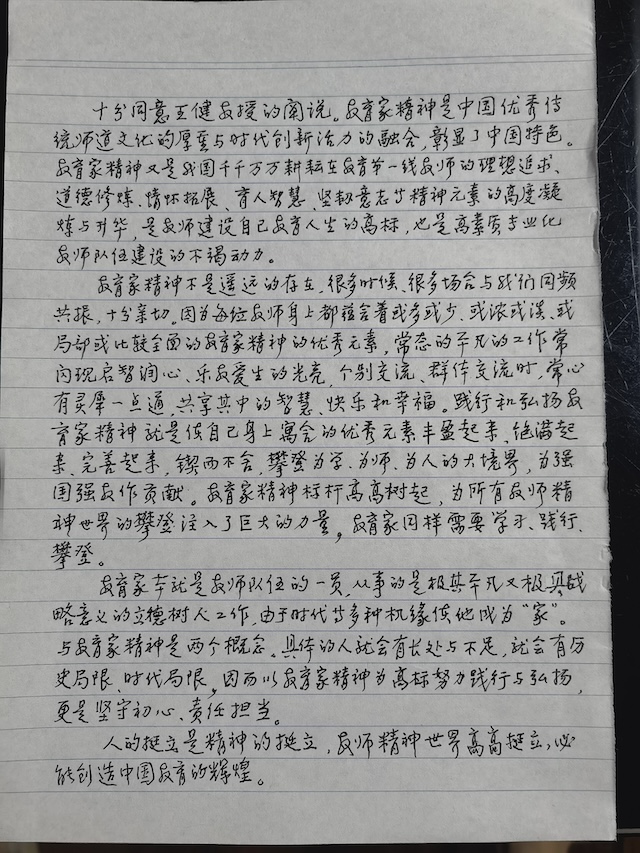 十分同意王健教授的阐说。教育家精神是中国优秀传
统师道文化的厚重与时代创新活力的融合，彰显了中国特色。
教育家精神又是我国千千万万耕耘在教育第一线教师的理想追求、
道德修炼、情怀拓展、育人智慧、坚韧意志等精神元素的高度凝
炼与升华，是教师建设自己教育人生的高标，也是高素质专业化
教师队伍建设的不竭动力。
教育家精神不是遥远的存在，很多时候、很多场合与我们同频
共振，十分亲切。因为每位教师身上都蕴含着或多或少、或浓或淡、或
局部或比较全面的教育家精神的优秀元素，常态的平凡的工作常
闪现启智润心、乐教爱生的光亮，个别交流、群体交流时，常心
有灵犀一点通，共享其中的智慧、快乐和幸福。践行和弘扬教
育家精神就是使自己身上寓含的优秀元素丰盈起来、饱满起
来、完善起来，锲而不舍，攀登为学、为师、为人的大境界，为强
国强教作贡献。教育家精神标杆高高树起，为所有教师精
神世界的攀登注入了巨大的力量，教育家同样需要学习、践行、
攀登。
教育家本就是教师队伍的一员，从事的是极其平凡又极具战
略意义的立德树人工作，由于时代等多种机缘使他成为“家”。
与教育家精神是两个概念。具体的人就会有长处与不足，就会有历
史局限、时代局限，因而以教育家精神为高标努力践行与弘扬，
更是坚守初心、责任担当。
人的挺立是精神的挺立，教师精神世界高高挺立，必
能创造中国教育的辉煌。